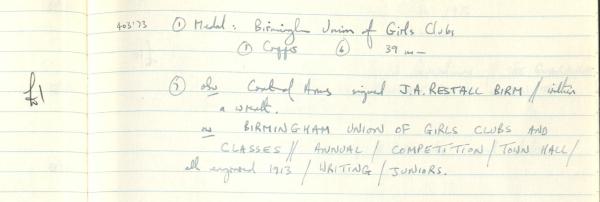 403'73 ① Medal: Birmingham Union of Girls Clubs
⑤ Copper ⑥ 39 mm
£1
⑦ obv Central Arms signed J.A. RESTALL BIRM // within
a wreath.
rev BIRMINGHAM UNION OF GIRLS CLUBS AND
CLASSES // ANNUAL / COMPETITION / TOWN HALL /
all engraved 1913 / WRITING / JUNIORS.